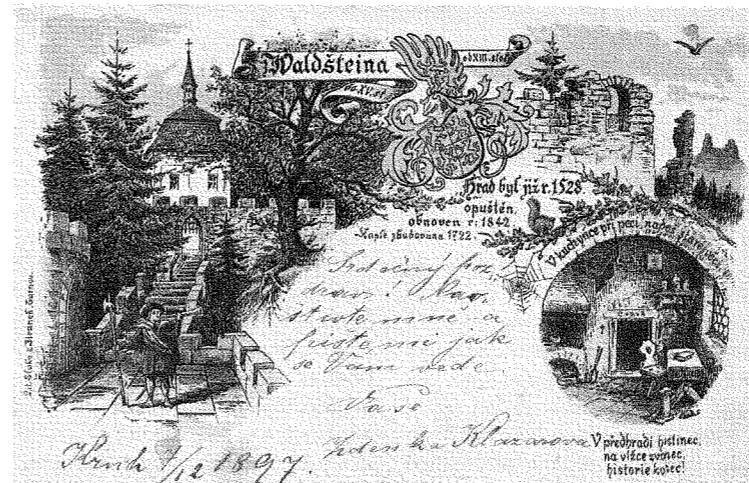 Waldšteina
od XIII. stol.
Hrad byl již r. 1528
opuštěn,
obnoven r. 1842
Kaple zbudována 1722
V kuchyňce při peci
Srdečný poz-
drav! Nav-
štivte mně a
pište mi jak
se Vám vede.
Vaše
Zdenka Klazarova
1897.
V předhradí hostinec,
na vížce zvonec,
historie konec!